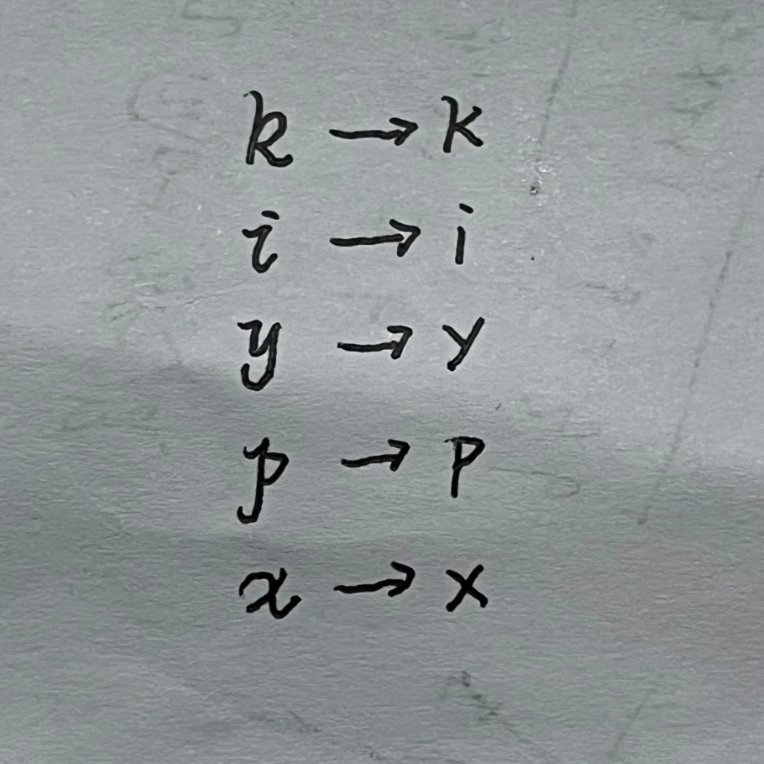 k → k
i → i
y → y
p → p
x → x